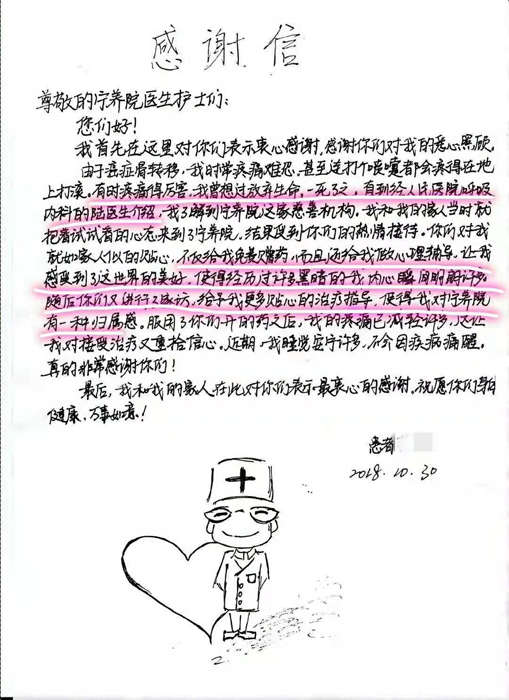 感谢信
尊敬的宁养院医生护士们：
您们好！
我首先在这里对你们表示衷心感谢，感谢你们对我的悉心照顾。
由于癌症骨转移，我时常疼痛难忍，甚至连打个喷嚏都会疼得在地
上打滚，有时疼痛得厉害，我曾想过放弃生命，一死了之，直到经人民医院呼吸
内科的陆医生介绍，我了解到宁养院这家慈善机构，我和我的家人当时就
抱着试试看的心态来到了宁养院，结果受到你们的热情接待。你们对我
就如家人似的贴心，不仅给我免费赠药，而且还给我做心理辅导，让我
感受到了这世界的美好，使得经历过许多黑暗的我，内心瞬间明朗许多，
随后你们又进行了家访，给予我更多贴心的治疗指导，使得我对宁养院
有一种归属感，服用了你们开的药之后，我的疼痛已减轻许多，这让
我对接受治疗又重拾信心，近期，我睡觉安宁许多，不会因疾病痛醒，
真的非常感谢你们！
最后，我和我的家人在此对你们表示最衷心的感谢，祝愿你们身体
健康，万事如意！
患者
2018.10.30